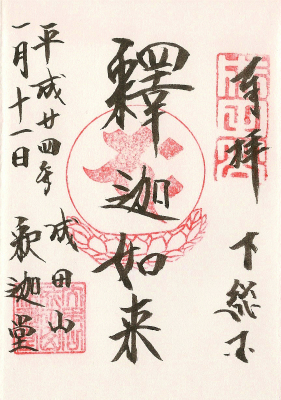 奉拝
下総不
釋迦如来
成田山
釈迦堂
平成廿四年
一月十一日